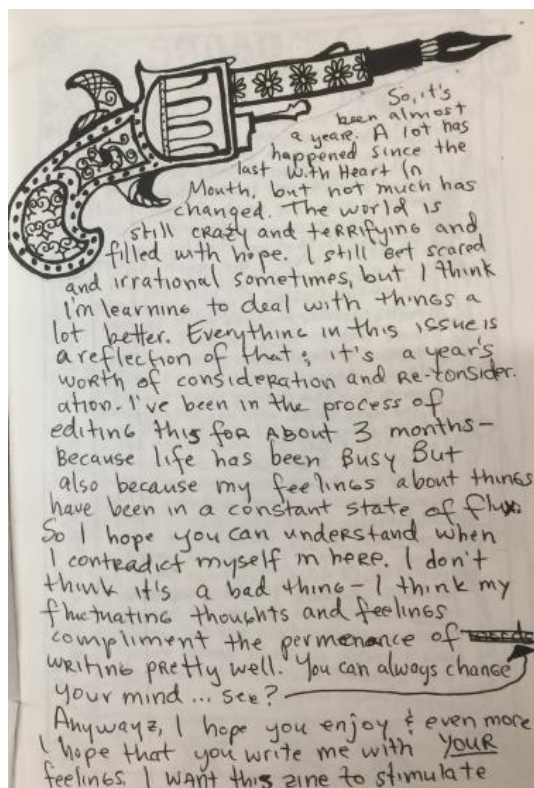 So, it's
been almost
a yeare. A lot has
happened since the
last With Heart In
Mouth, but not much has
changed. The world is
still crazy and terrifying and
filled with hope. I still get scared
and irrational sometimes, but I think
I'm learning to deal with things a
lot better. Everything in this issue is
a reflection of that; it's a year's
worth of consideration and re-consider-
ation. I've been in the process of
editing this for about 3 months-
because life has been busy but
also because my feelings about things
have been in a constant state of flux.
So I hope you can understand when
I contradict myself in here. I don't
think it's a bad thing - I think my
fluctuating thoughts and feelings
compliment the permenance of
writing pretty well. You can always change
your mind ... see?
Anywayz, I hope you enjoy & even more
I hope that you write me with YOUR
feelings. I want this zine to stimulate